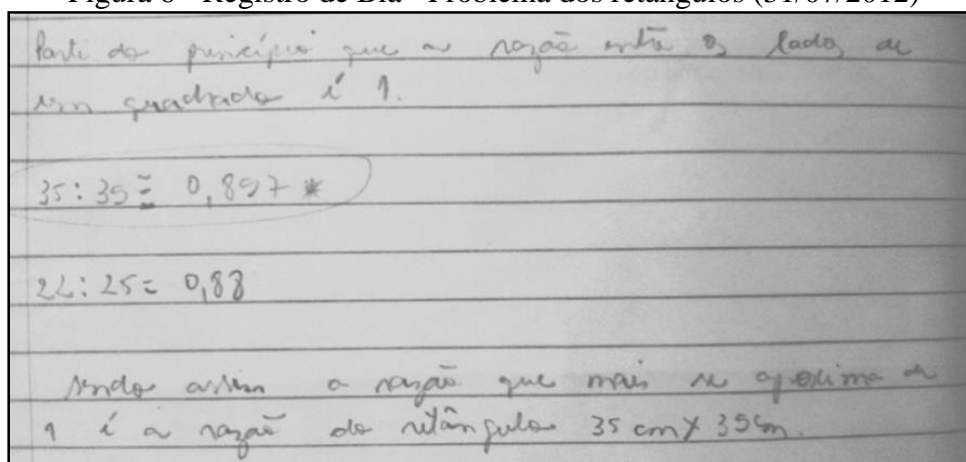 Figura 6 - Registro de Bia - Problema dos retângulos (31/07/2012)
Parti do princípio que a razão entre os lados de
um quadrado é 1.
35:39 ≅ 0,897 *
22:25 = 0,88
Sendo assim a razão que mais se aproxima de
1 é a razão do retângulo 35 cm X 39cm.